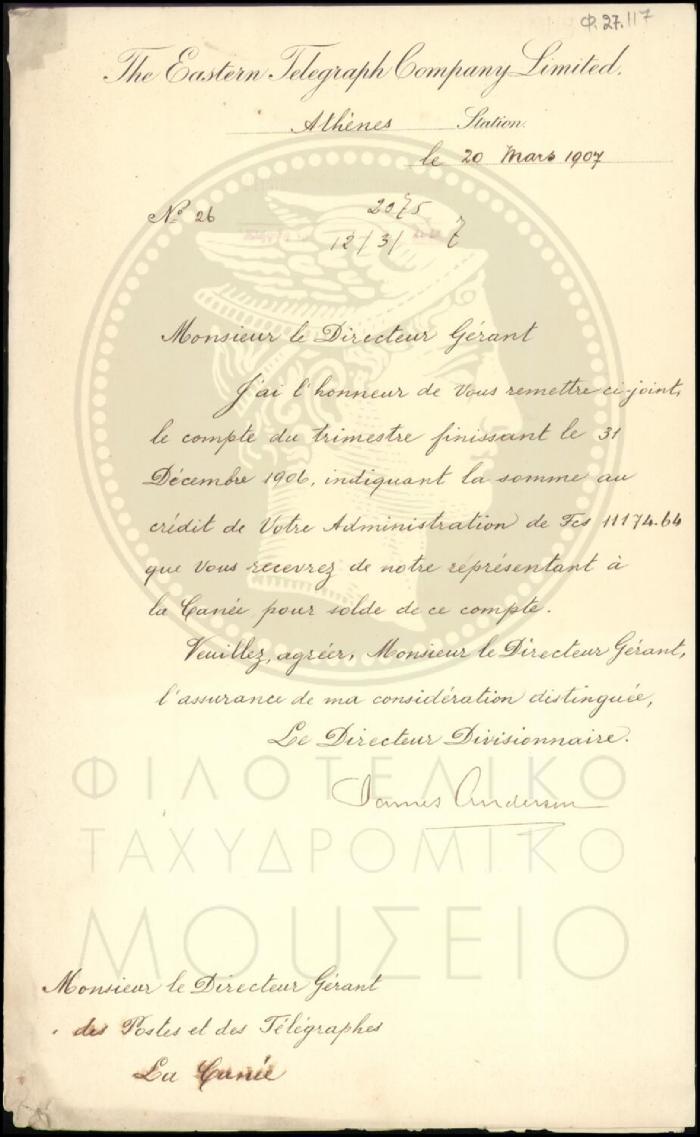 Φ.27.117
The Eastern Telegraph Company, Limited.
Athènes Station.
le 20 Mars 1907
No 26
2075
12/3/7
Monsieur le Directeur Gérant
J'ai l'honneur de Vous remettre ci-joint,
le compte du trimestre finissant le 31
Décembre 1906, indiquant la somme au
crédit de Votre Administration de Fcs 11174.64
que Vous recevrez de notre représentant à
la Canée, pour solde de ce compte.
Veuillez, agréer, Monsieur le Directeur Gérant,
l'assurance de ma considération distinguée,
Le Directeur Divisionnaire.
James Anderson
ΦΙΛΟΤΕΛΙΚΟ
ΤΑΧΥΔΡΟΜΙΚΟ
ΜΟΥΣΕΙΟ
Monsieur le Directeur Gérant
des Postes et des Télégraphes
La Canée